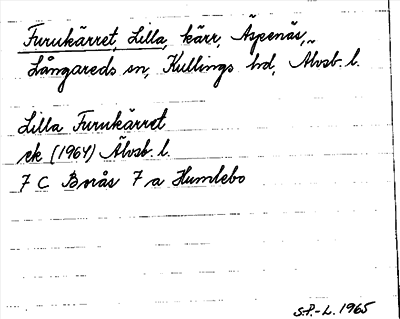 Furukärret, Lilla, kärr, Äpenäs,
Långareds sn, Kullings hd, Älvsb. l.
Lilla Furukärret
ek (1964) Älvsb. l.
7 C Borås 7 a Humlebo
S.P.-L. 1965